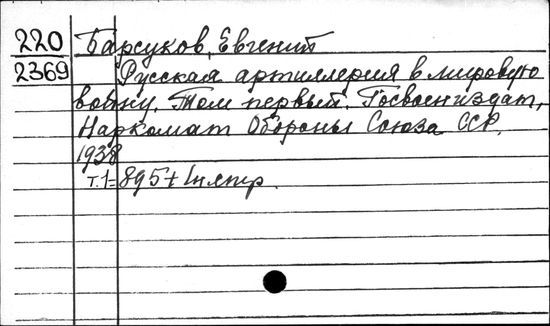 220 Барсуков, Евгений
2369 Русская артиллерия в мировую
войну. Том первый. Госвоениздат,
Наркомат Обороны Союза ССР.
1938
т.1= 395+